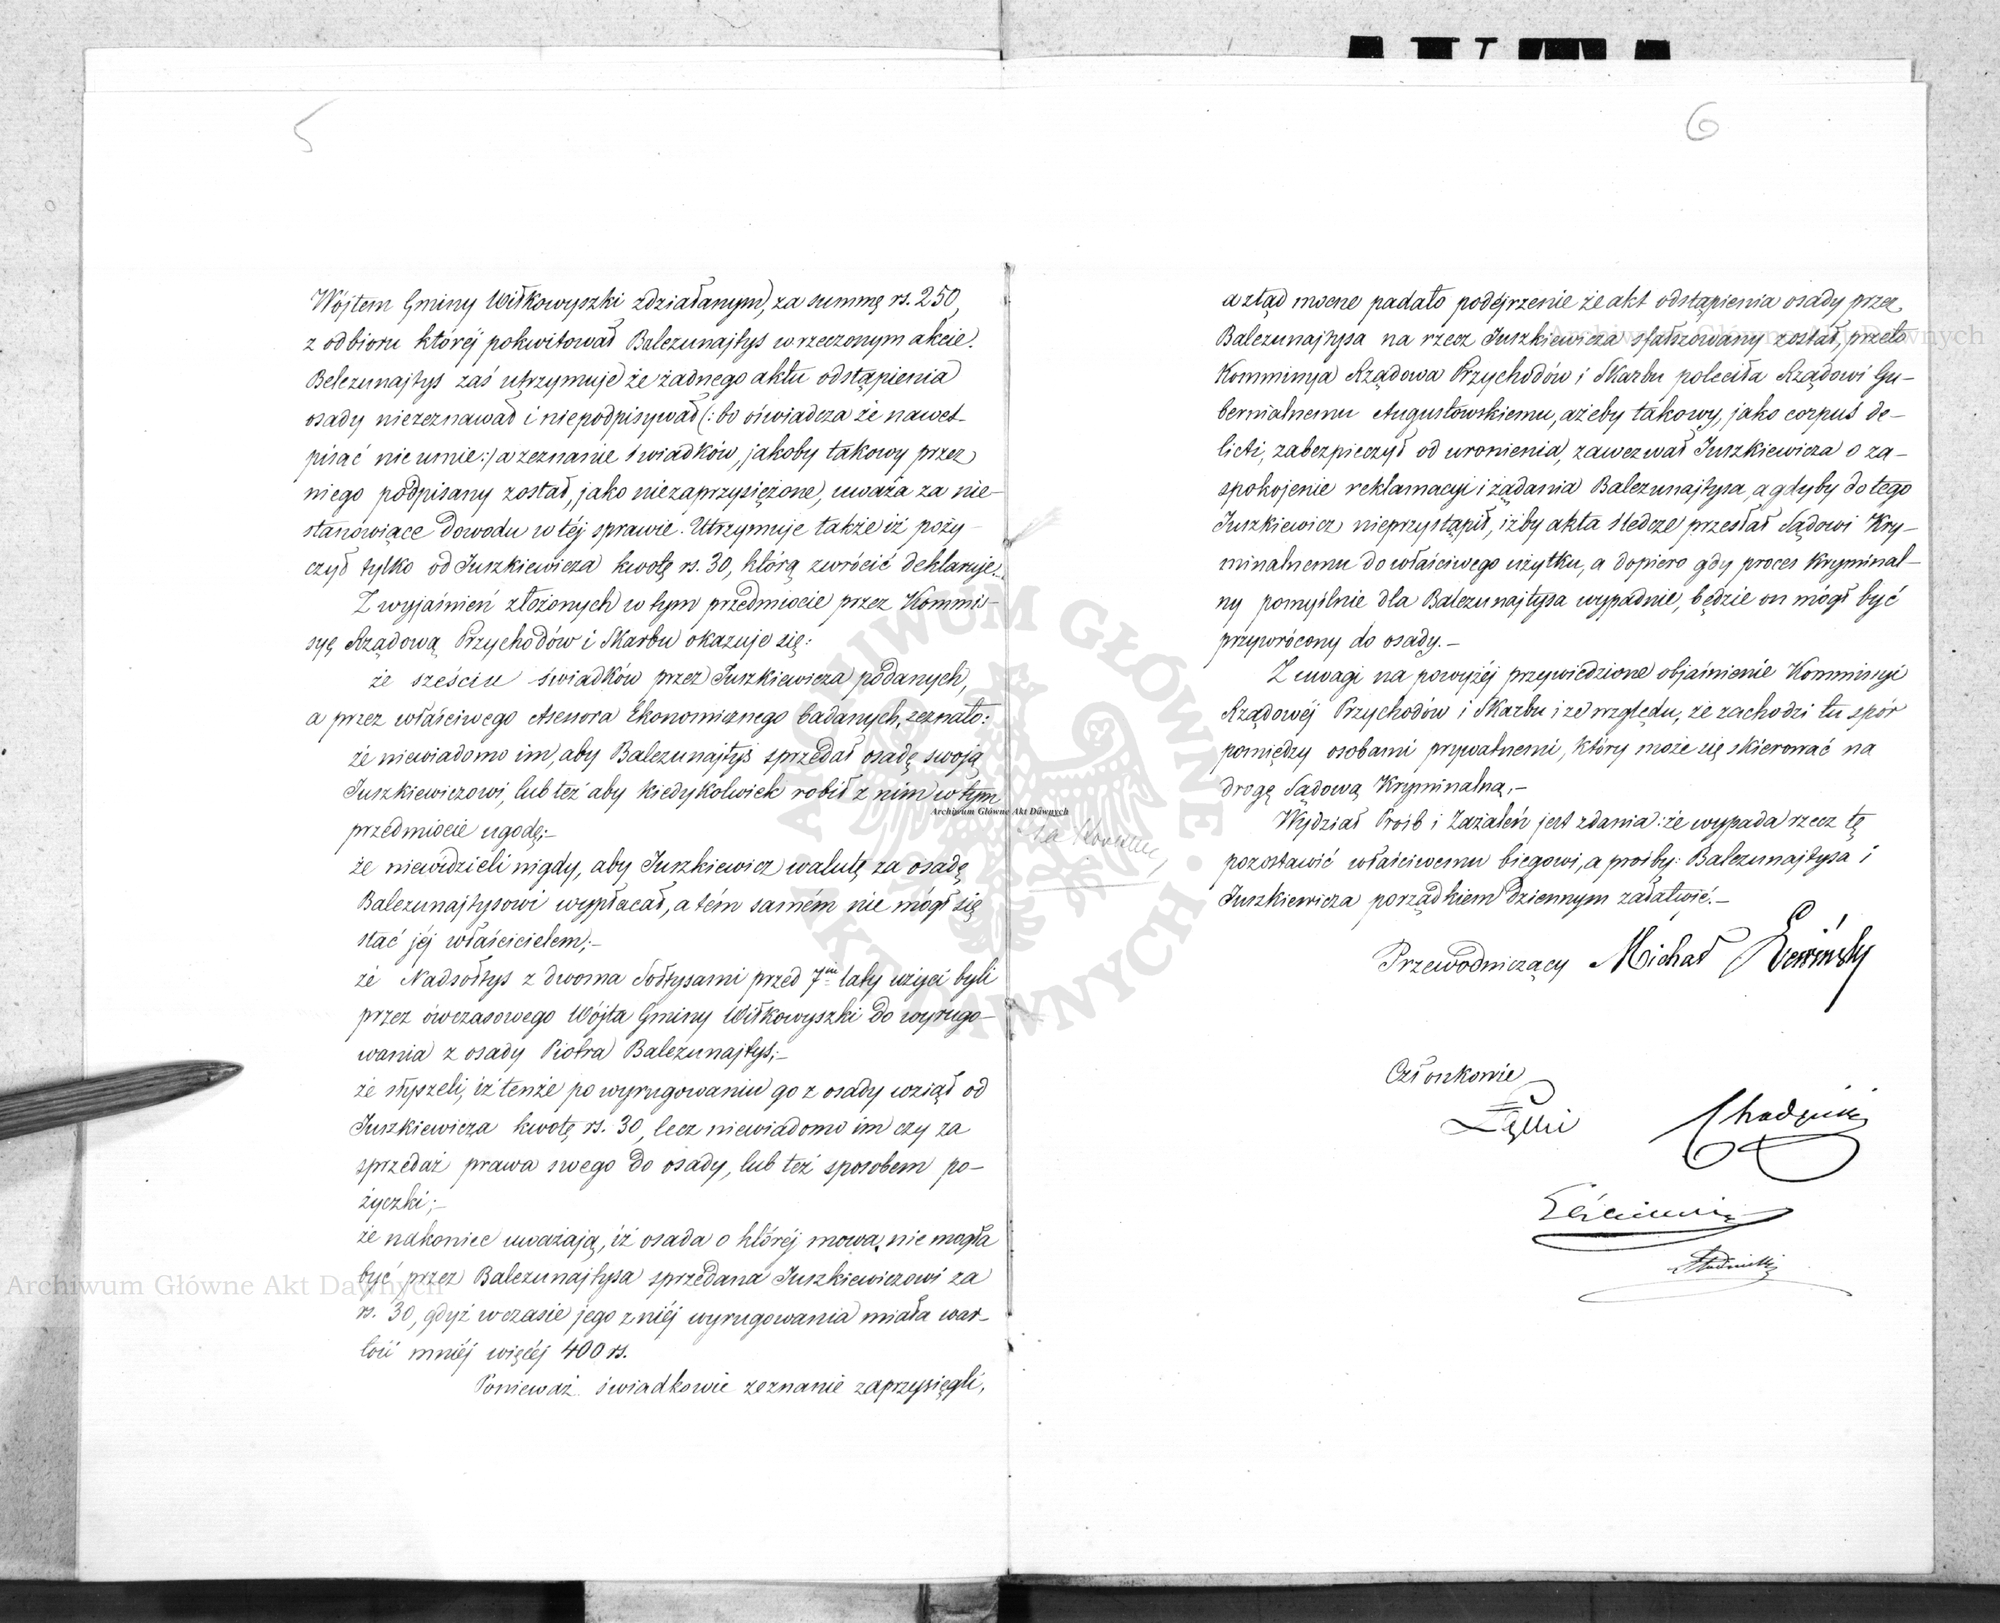 5
Wójtem Gminy Wiłkowyszki zdziałanym, za summę rs. 250,
z odbioru któréj pokwitował Balezunajtys w rzeczonym akcie.
Belezunajtys zaś utrzymuje że żadnego aktu odstąpienia
osady niezeznawał i niepodpisywał (: bo oświadcza że nawet
pisać nie umie :) a zeznanie świadków, jakoby takowy przez
niego podpisany został, jako niezaprzysiężone, uważa za nie-
stanowiące dowodu w téj sprawie. Utrzymuje także iż poży-
czył tylko od Juszkiewicza kwotę rs. 30, którą zwrócić deklaruje.
Z wyjaśnień złożonych w tym przedmiocie przez Kommis-
syę Rządową Przychodów i Skarbu okazuje się:
że sześciu świadków przez Juszkiewicza podanych,
a przez właściwego Asessora Ekonomicznego badanych, zeznało:
że niewiadomo im, aby Balezunajtys sprzedał osadę swoją
Juszkiewiczowi, lub też aby kiedykolwiek robił z nim w tym
przedmiocie ugodę;-
że niewidzieli nigdy, aby Juszkiewicz walutę za osadę
Balezunajtysowi wypłacał, a tém samém nie mógł się
stać jéj właścicielem;-
że Nadsołtys z dwoma Sołtysami przed 7miu laty użyci byli
przez ówczasowego Wójta Gminy Wiłkowyszki do wyrugo-
wania z osady Piotra Balezunajtys;-
że słyszeli, iż tenże po wyrugowaniu go z osady wziął od
Juszkiewicza kwotę rs. 30, lecz niewiadomo im czy za
sprzedaż prawa swego do osady, lub też sposobem po-
życzki;-
że nakoniec uważają, iż osada o któréj mowa, nie mogła
być przez Balezunajtysa sprzedana Juszkiewiczowi za
rs. 30, gdyż w czasie jego z niéj wyrugowania miała war-
tość mniéj więcéj 400 rs.
Ponieważ świadkowie zeznanie zaprzysięgli,
6
a ztąd mocne padało podéjrzenie że akt odstąpienia osady przez
Balezunajtysa na rzecz Juszkiewicza sfałszowany został, przeto
Komminya Rządowa Przychodów i Skarbu poleciła Rządowi Gu-
bernialnemu Augustowskiemu, ażeby takowy, jako corpus de-
licti, zabezpieczył od uronienia, zawezwał Juszkiewicza o za-
spokojenie reklamacyi i żądania Balezunajtysa, a gdyby do tego
Juszkiewicz nieprzystąpił, iżby akta śledcze przesłał Sądowi Kry-
minalnemu do właściwego użytku, a dopiero gdy proces kryminal-
ny pomyślnie dla Balezunajtysa wypadnie, będzie on mógł być
przywrócony do osady.-
Z uwagi na powyżéj przywiedzione objaśnienie Kommissyi
Rządowéj Przychodów i Skarbu i ze względu, że zachodzi tu spór
pomiędzy osobami prywatnemi, który może się skierować na
drogę Sądową Kryminalną,-
Wydział Proźb i Zażaleń jest zdania: że wypada rzecz tę
pozostawić właściwemu biegowi, a prośby: Balezunajtysa i
Juszkiewicza porządkiem dziennym załatwić.-
Przewodniczący Michał
Członkowie
Archiwum Główne Akt Dawnych
Archiwum Główne Akt Dawnych
Archiwum Główne Akt Dawnych
ARCHIWUM GŁÓWNE AKT DAWNYCH